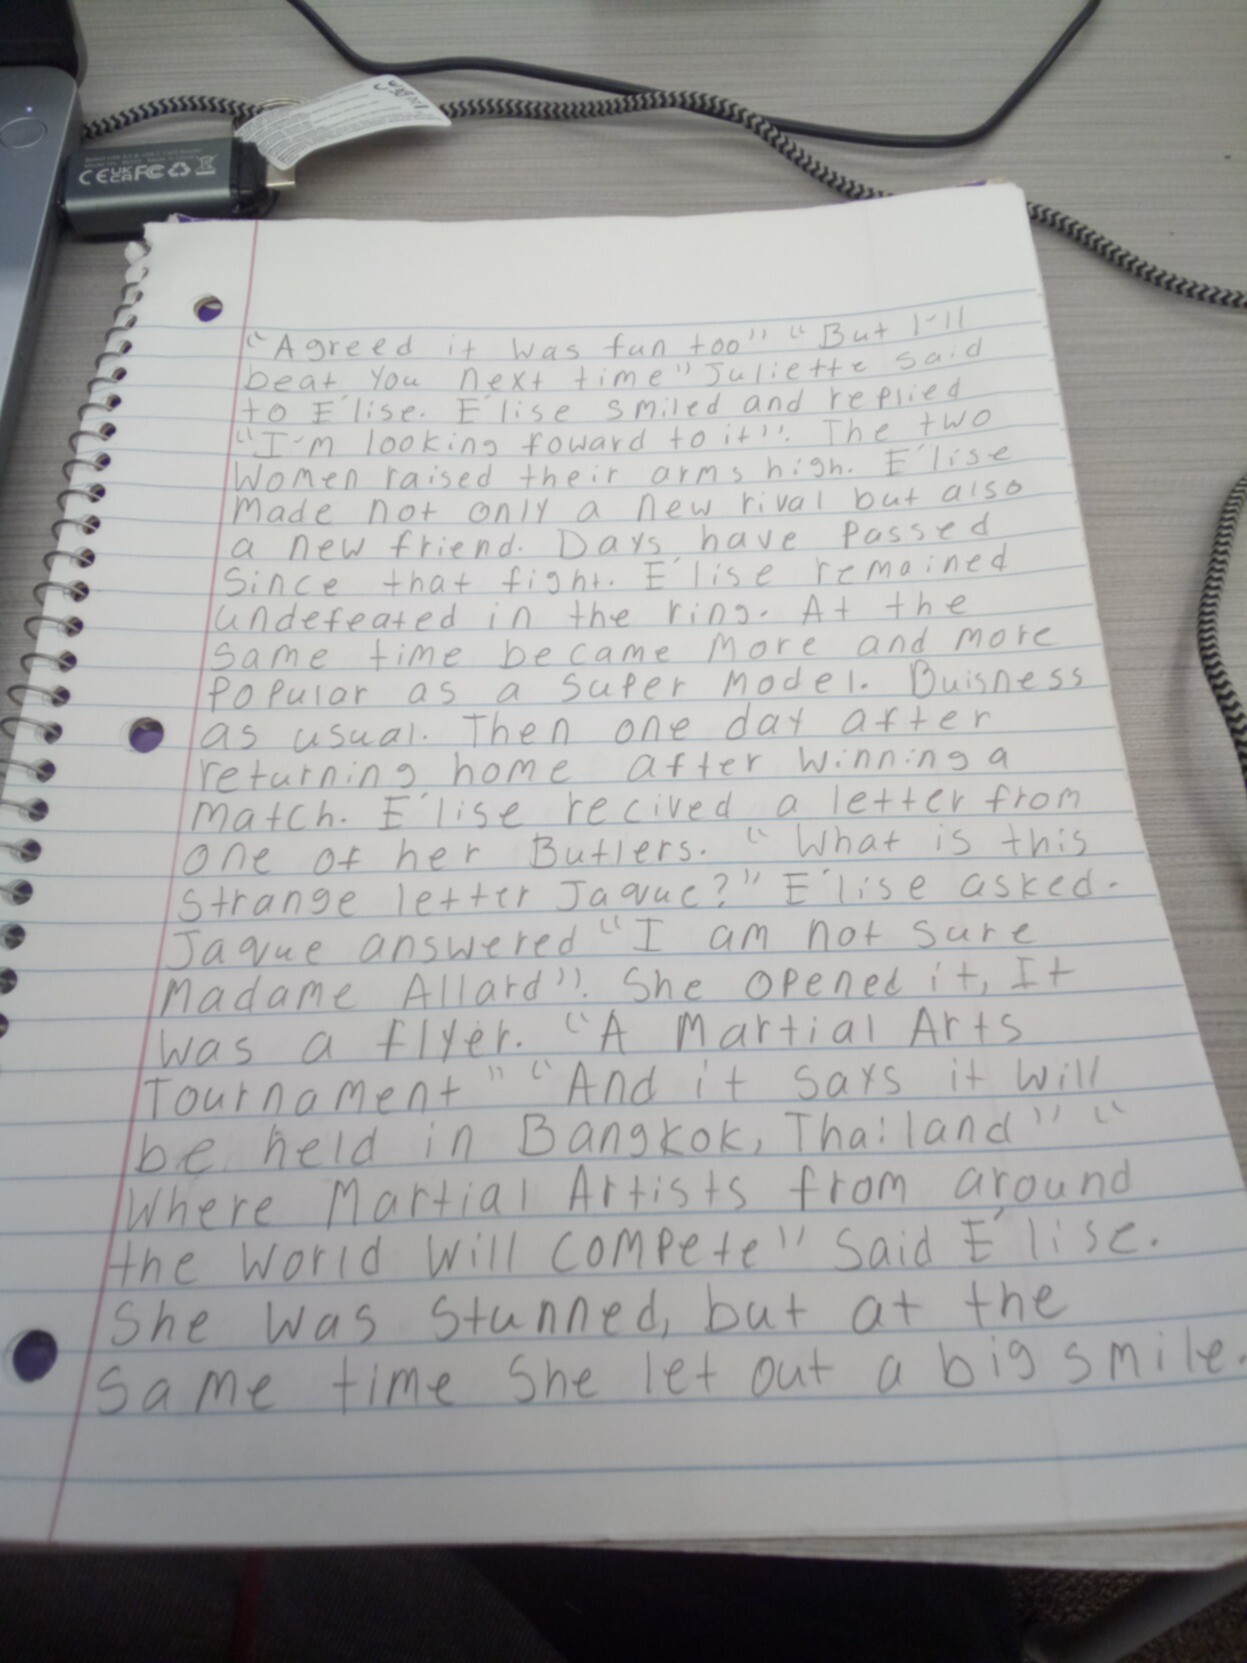 CE UK CA FC
"Agreed it was fun too" "But I'll
beat you next time" Juliette said
to E'lise. E'lise smiled and replied
"I'm looking foward to it". The two
Women raised their arms high. E'lise
made not only a new rival but also
a new friend. Days have passed
Since that fight. E'lise remained
undefeated in the ring. At the
same time became more and more
popular as a super model. Buisness
as usual. Then one day after
returning home after winning a
match. E'lise recived a letter from
one of her Butlers. "What is this
strange letter Jaque?" E'lise asked.
Jaque answered "I am not sure
Madame Allard". She opened it, It
was a flyer. "A Martial Arts
Tournament" "And it says it will
be held in Bangkok, Thailand" "
Where Martial Artists from around
the world will compete" said E'lise.
She was stunned, but at the
same time she let out a big smile.